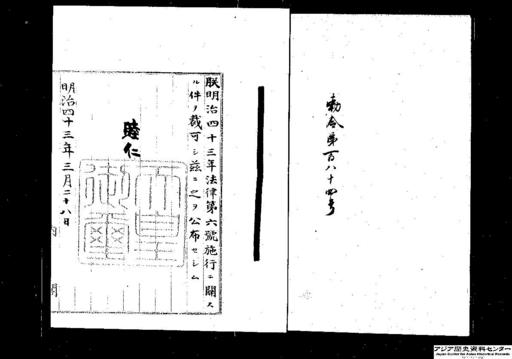 勅令第百八十四号
朕明治四十三年法律第六號施行ニ關ス
ル件ヲ裁可シ茲ニ之ヲ公布セシム
睦仁
天皇御璽
明治四十三年三月二十八日
内閣
アジア歴史資料センター
Japan Center for Asian Historical Records